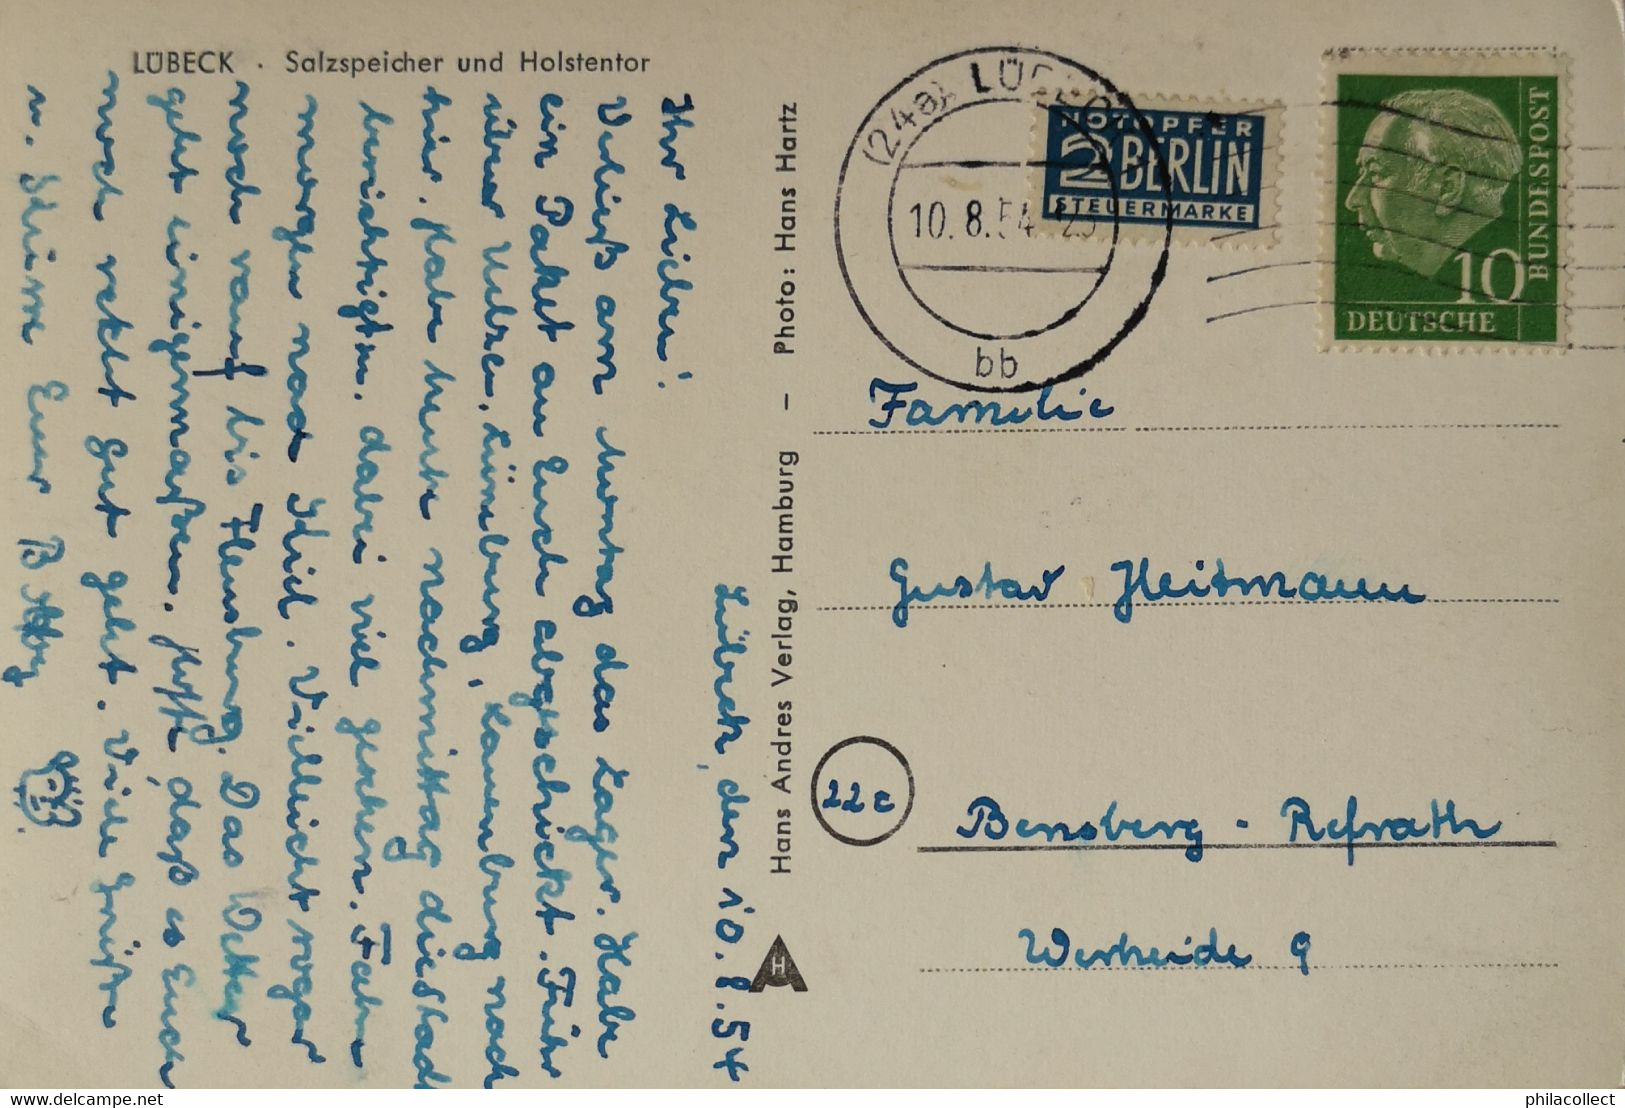 LÜBECK · Salzspeicher und Holstentor
Lübeck, den 10.8.54
Ihr Lieben!
Verließ am Montag das Lager. Habe
ein Paket an Euch abgeschickt. Fuhr
über Uelzen, Lüneburg, Lauenburg nach
hier. Habe heute nachmittag die Stadt
besichtigt u. dabei viel gesehen. Fahre
morgen nach Kiel. Vielleicht sogar
noch rauf bis Flensburg. Das Wetter
geht einigermaßen. Hoffe, daß es Euch
noch recht gut geht. Viele Grüße
u. Euer
Hans Andres Verlag, Hamburg – Photo: Hans Hartz
H
(24a) LÜBECK
10.8.54
bb
NOTOPFER
2 BERLIN
STEUERMARKE
10
DEUTSCHE
BUNDESPOST
Familie
Gustav Heitmann
22c
Bensberg - Refrath
Werheide 9
philacollect on www.delcampe.net
philacollect